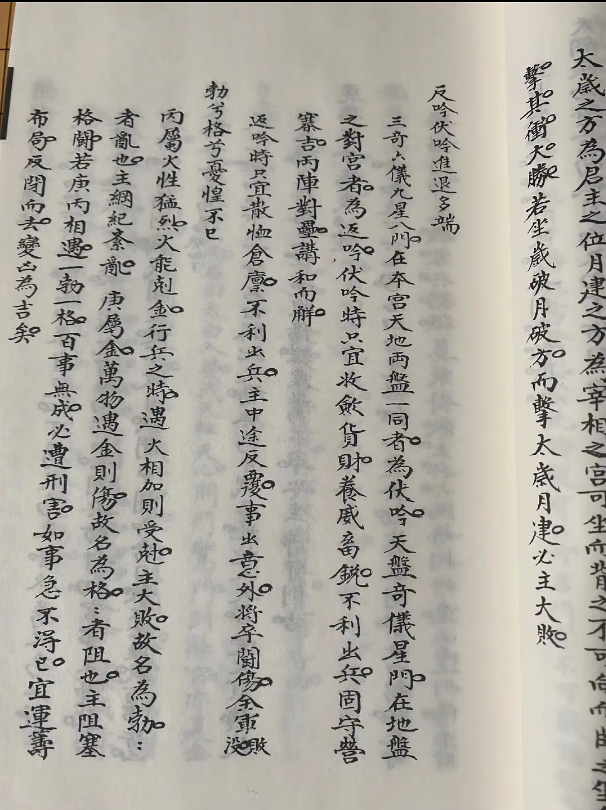 太歲之方為君主之位月建之方為宰相之宮可坐而背之不可向而
擊其衝大勝若坐歲破月破方而擊太歲月建必主大敗
反吟伏吟進退多端
三奇六儀九星八門在夲宮天地両盤一同者為伏吟天盤奇儀星門在地盤
之對宮者為返吟伏吟時只宜收斂貨財養威畜銳不利出兵固守營
寨吉両陣對壘講和而觧
返吟時只宜散恤倉廪不利出兵主中途反覆事出意外將卒鬪傷全軍敗沒
勃兮格兮憂惶不已
丙屬火性猛烈火能剋金行兵之時遇火相加則受尅主大敗故名為勃：
者亂也主綱紀紊亂庚屬金萬物遇金則傷故名為格：者阻也主阻塞
格鬪若庚丙相遇一勃一格百事無成必遭刑害如事急不淂已宜運籌
布局反閉而去變凶為吉矣